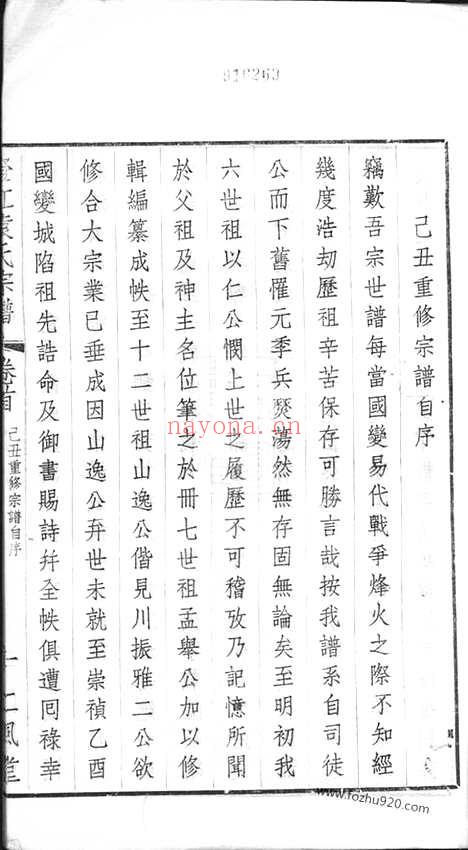 816263
己丑重修宗譜自序
竊歎吾宗世譜每當國變易代戰爭烽火之際不知經
幾度浩劫歷祖辛苦保存可勝言哉按我譜系自司徒
公而下舊罹元季兵燹蕩然無存固無論矣至明初我
六世祖以仁公憫上世之履歷不可稽攷乃記憶所聞
於父祖及神主名位筆之於冊七世祖孟舉公加以修
輯編纂成帙至十二世祖山逸公偕見川振雅二公欲
修合大宗業已垂成因山逸公弃世未就至崇禎乙酉
國變城陷祖先誥命及御書賜詩幷全帙俱遭囘祿幸
江袁氏宗譜
卷首
己丑重修宗譜自序
一
nayona.cn
www.fozhu920.com